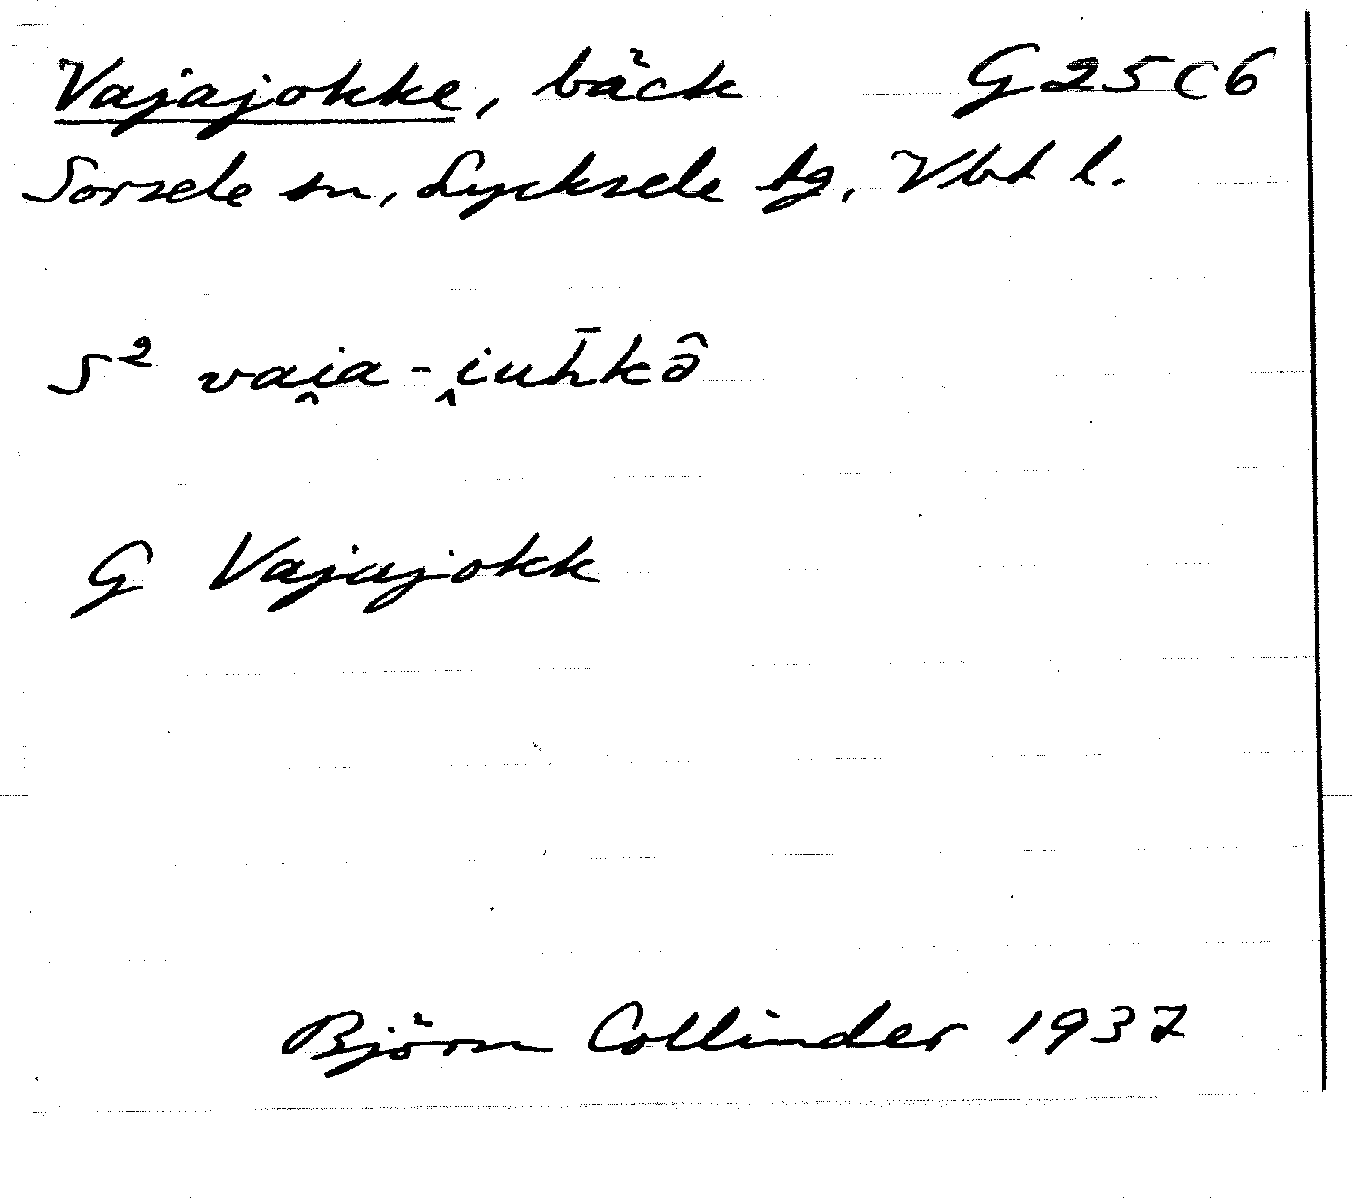 Vajajokke, bäck G25C6
Sorsele sn, Lycksele tg, Vbt l.
S² vai̯a-i̯uh̄kə̂
G Vajajokk
Björn Collinder 1937